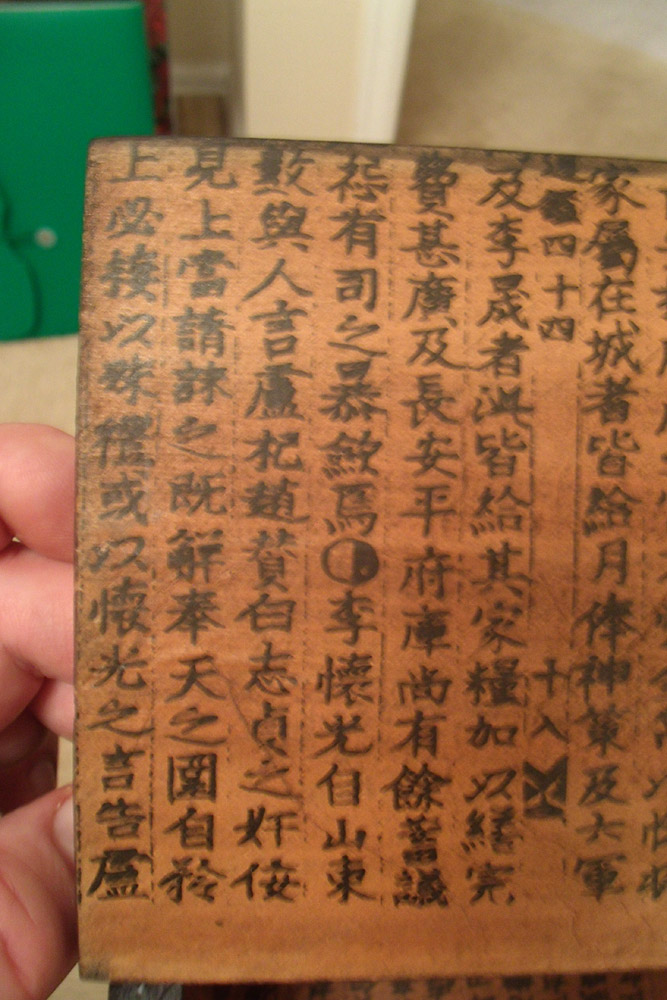 家屬在城者皆給月俸神策及六軍
四十四 十八
及李晟者泚皆給其家糧加以繕完
費甚廣及長安平府庫尚有餘蓄議
怨有司之暴斂焉李懷光自山東
數與人言盧杞趙贊白志貞之奸佞
見上當請誅之既解奉天之圍自矜
上必接以殊禮或以懷光之言告盧